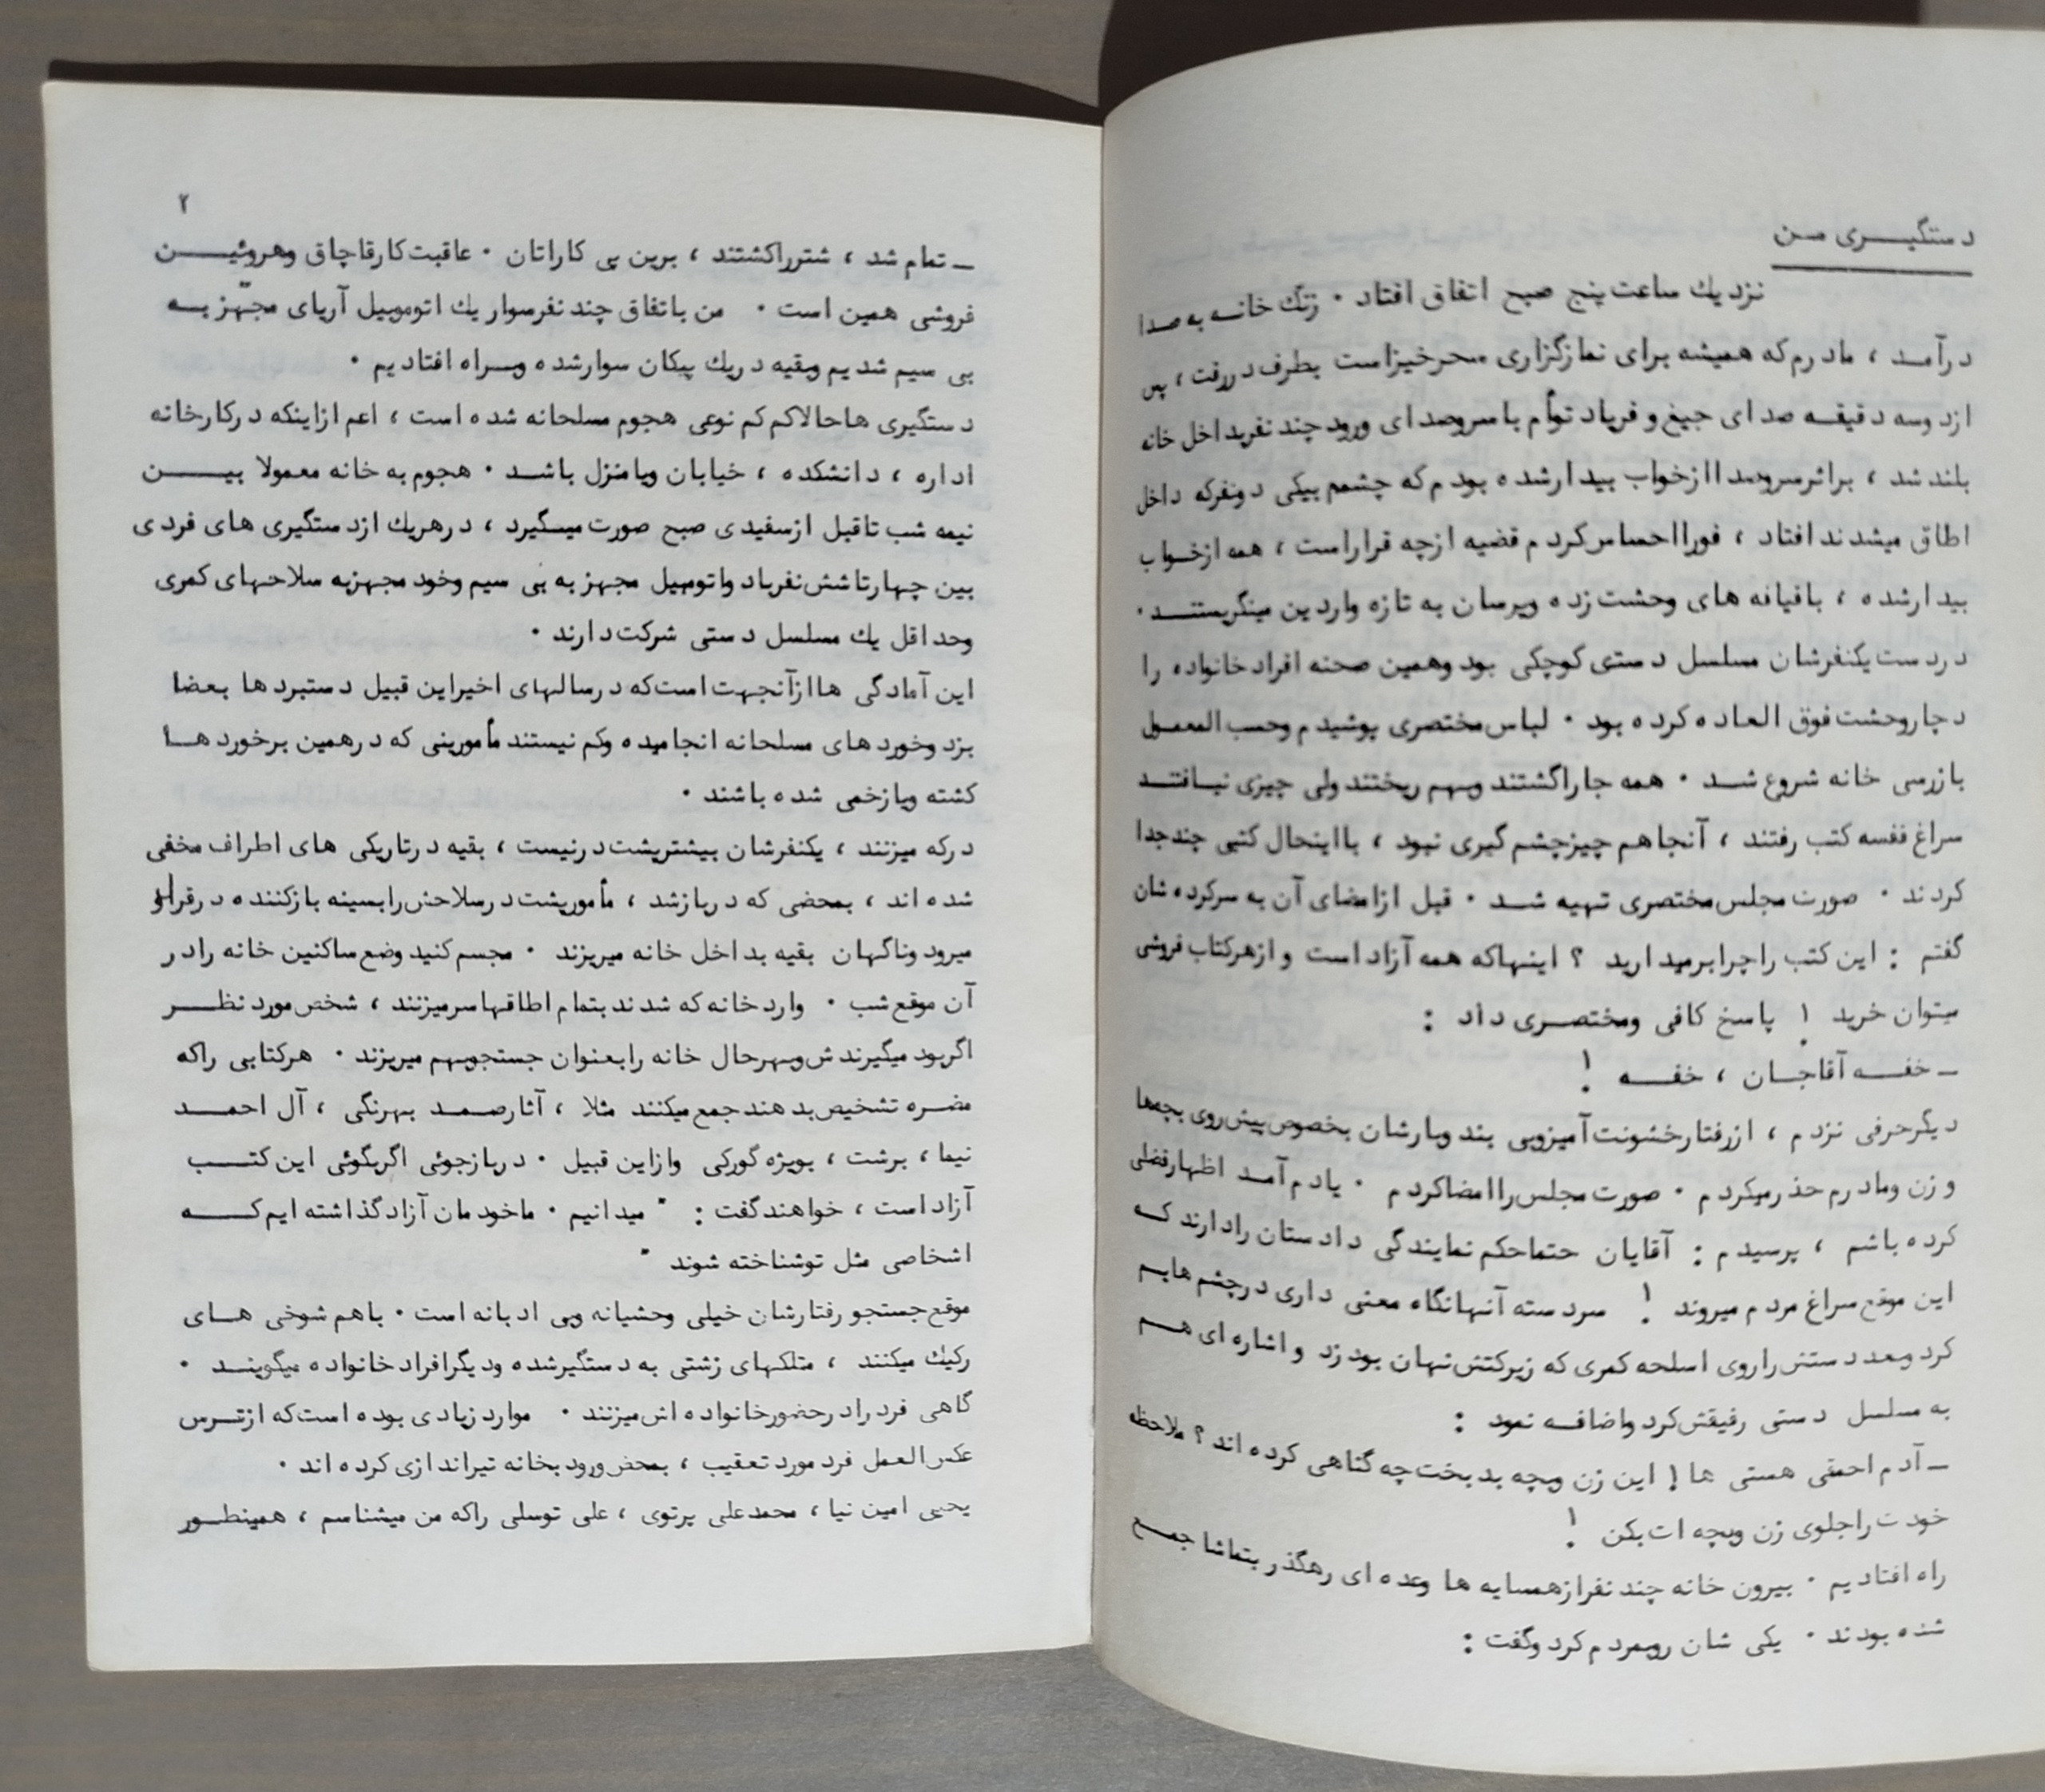 دستگیری من
نزدیك ساعت پنج صبح اتفاق افتاد ۰ زنگ خانه به صدا
درآمد ، مادرم که همیشه برای نمازگزاری سحرخیزاست بطرف دررفت ، پس
ازدوسه دقیقه صدای جیغ و فریاد توأم باسروصدای ورود چند نفربداخل خانه
بلند شد ، براثرسروصدا ازخواب بیدارشده بودم که چشمم بیکی دونفرکه داخل
اطاق میشدند افتاد ، فورا احساس کردم قضیه ازچه قراراست ، همه ازخواب
بیدارشده ، باقیافه های وحشت زده وپرسان به تازه واردین مینگریستند ۰
دردست یکنفرشان مسلسل دستی کوچکی بود وهمین صحنه افراد خانواده را
دچاروحشت فوق العاده کرده بود ۰ لباس مختصری پوشیدم وحسب المعمول
بازرسی خانه شروع شد ۰ همه جاراگشتند وبهم ریختند ولی چیزی نیافتند
سراغ قفسه کتب رفتند ، آنجاهم چیزچشم گیری نبود ، بااینحال کتبی چندجدا
کردند ۰ صورت مجلس مختصری تهیه شد ۰ قبل ازامضای آن به سرکرده شان
گفتم : این کتب راچرابرمیدارید ؟ اینهاکه همه آزاد است و ازهرکتاب فروشی
میتوان خرید ! پاسخ کافی ومختصری داد :
ــ خفه آقاجان ، خفه !
دیگرحرفی نزدم ، ازرفتارخشونت آمیزوبی بند وبارشان بخصوص پیش روی بچه‌ها
و زن ومادرم حذرمیکردم ۰ صورت مجلس راامضاکردم ۰ یادم آمد اظهارفضلی
کرده باشم ، پرسیدم : آقایان حتماحکم نمایندگی دادستان رادارند که
این موقع سراغ مردم میروند ! سردسته آنهانگاه معنی داری درچشم هایم
کرد وبعد دستش راروی اسلحه کمری که زیرکتش نهان بود زد و اشاره ای هم
به مسلسل دستی رفیقش کرد واضافه نمود :
ــ آدم احمقی هستی ها ! این زن وبچه بدبخت چه گناهی کرده اند ؟ ملاحظه
خودت راجلوی زن وبچه ات بکن !
راه افتادیم ۰ بیرون خانه چند نفرازهمسایه ها وعده ای رهگذر بتماشا جمع
شده بودند ۰ یکی شان روبمردم کرد وگفت :
۲
ــ تمام شد ، شترراکشتند ، برین پی کاراتان ۰ عاقبت کارقاچاق وهروئین
فروشی همین است ۰ من باتفاق چند نفرسوار یك اتوموبیل آریای مجهز به
بی سیم شدیم وبقیه دریك پیکان سوارشده وبراه افتادیم ۰
دستگیری هاحالاکم کم نوعی هجوم مسلحانه شده است ، اعم ازاینکه درکارخانه
اداره ، دانشکده ، خیابان ویامنزل باشد ۰ هجوم به خانه معمولا بین
نیمه شب تاقبل ازسفیدی صبح صورت میگیرد ، درهریك ازدستگیری های فردی
بین چهارتاشش نفرباد واتومبیل مجهز به بی سیم وخود مجهزبه سلاحهای کمری
وحداقل یك مسلسل دستی شرکت دارند ۰
این آمادگی هاازآنجهت است که درسالهای اخیراین قبیل دستبردها بعضا
بزد وخوردهای مسلحانه انجامیده وکم نیستند مأمورینی که درهمین برخوردها
کشته ویازخمی شده باشند ۰
درکه میزنند ، یکنفرشان بیشترپشت درنیست ، بقیه درتاریکی های اطراف مخفی
شده اند ، بمحضی که دربازشد ، مأمورپشت درسلاحش رابسینه بازکننده درقراو
میرود وناگهان بقیه بداخل خانه میریزند ۰ مجسم کنید وضع ساکنین خانه رادر
آن موقع شب ۰ واردخانه که شدند بتمام اطاقهاسرمیزنند ، شخص مورد نظر
اگربود میگیرندش وبهرحال خانه رابعنوان جستجوبهم میریزند ۰ هرکتابی راکه
مضره تشخیص بدهند جمع میکنند مثلا ، آثارصمد بهرنگی ، آل احمد
نیما ، برشت ، بویژه گورکی وازاین قبیل ۰ دربازجوئی اگربگوئی این کتب
آزاد است ، خواهند گفت : " میدانیم ۰ ماخودمان آزادگذاشته ایم که
اشخاصی مثل توشناخته شوند "
موقع جستجو رفتارشان خیلی وحشیانه وبی ادبانه است ۰ باهم شوخی های
رکیك میکنند ، متلکهای زشتی به دستگیرشده ودیگرافراد خانواده میگویند ۰
گاهی فرد رادرحضورخانواده اش میزنند ۰ مواردزیادی بوده است که ازترس
عکس العمل فرد مورد تعقیب ، بمحض ورود بخانه تیراندازی کرده اند ۰
یحیی امین نیا ، محمد علی پرتوی ، علی توسلی راکه من میشناسم ، همینطور